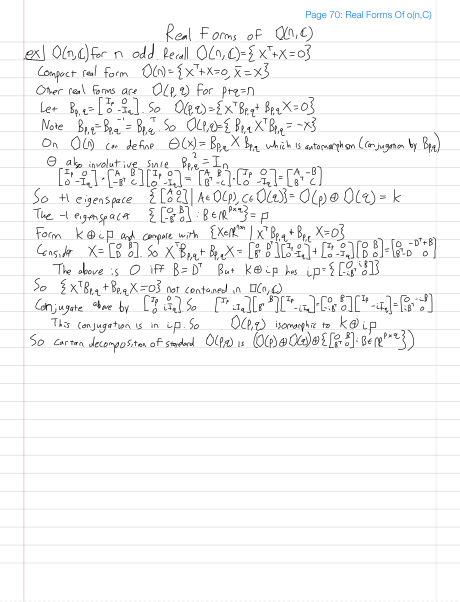 Page 70: Real Forms Of o(n,C)
Real Forms of O(n,ℂ)
ex] O(n,ℂ) for n odd. Recall O(n,ℂ)={X^T+X=0}
Compact real form O(n)={X^T+X=0, X̄=X}
Other real forms are O(p,q) for p+q=n
Let B_{p,q}=[I_p 0; 0 -I_q]. So O(p,q)={X^T B_{p,q}+B_{p,q}X=0}
Note B_{p,q}=B_{p,q}^{-1}=B_{p,q}^T. So O(p,q)={B_{p,q}X^T B_{p,q}=-X}
On O(n) can define Θ(x)=B_{p,q}XB_{p,q} which is automorphism (conjugation by B_{p,q})
Θ also involutive since B_{p,q}^2=I_n
[I_p 0; 0 -I_q]·[A B; -B^T C][I_p 0; 0 -I_q]=[A B; B^T -C]·[I_p 0; 0 -I_q]=[A -B; B^T C]
So +1 eigenspace {[A 0; 0 C] | A∈O(p), C∈O(q)}=O(p)⊕O(q)=k
The -1 eigenspace {[0 B; -B^T 0]:B∈ℝ^{p×q}}=p
Form k⊕ip and compare with {X∈ℝ^{n×n} | X^T B_{p,q}+B_{p,q}X=0}
Consider X=[0 B; D 0]. So X^T B_{p,q}+B_{p,q}X=[0 D^T; B^T 0][I_p 0; 0 -I_q]+[I_p 0; 0 -I_q][0 B; D 0]=[0 -D^T+B; B^T-D 0]
The above is 0 iff B=D^T But k⊕ip has ip={[0 iB; -iB^T 0]}
So {X^T B_{p,q}+B_{p,q}X=0} not contained in O(n,ℂ)
Conjugate above by [I_p 0; 0 iI_q] So [I_p; -iI_q][B^T B][I_p; -iI_q]=[0 B; -iB^T 0][I_p; -iI_q]=[0 -iB; -iB^T 0]
This conjugation is in ip. So O(p,q) isomorphic to k⊕ip
So cartan decomposition of standard O(p,q) is (O(p)⊕O(q))⊕{[0 B; B^T 0]:B∈ℝ^{p×q}})